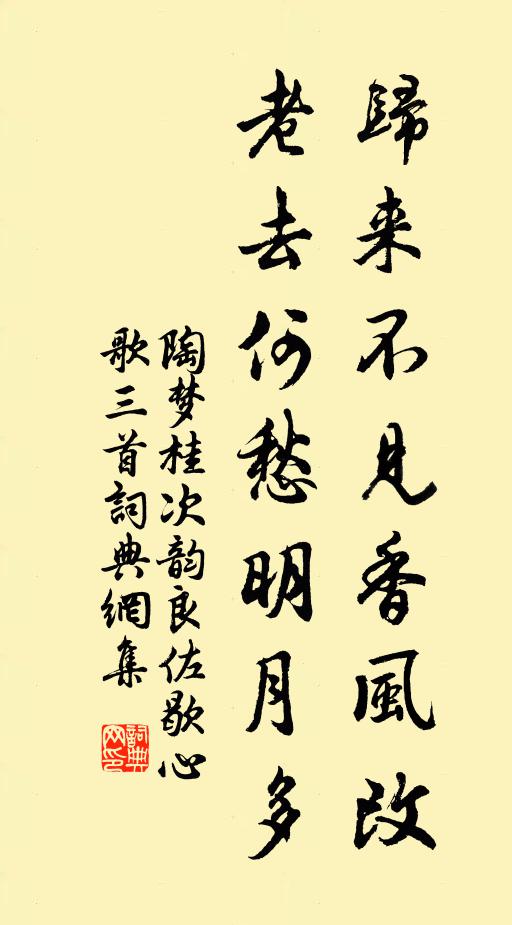 歸来不見香風改
老去何愁明月多
陶梦桂次韵良佐歇心
歌三首詞典網集
詞典网印